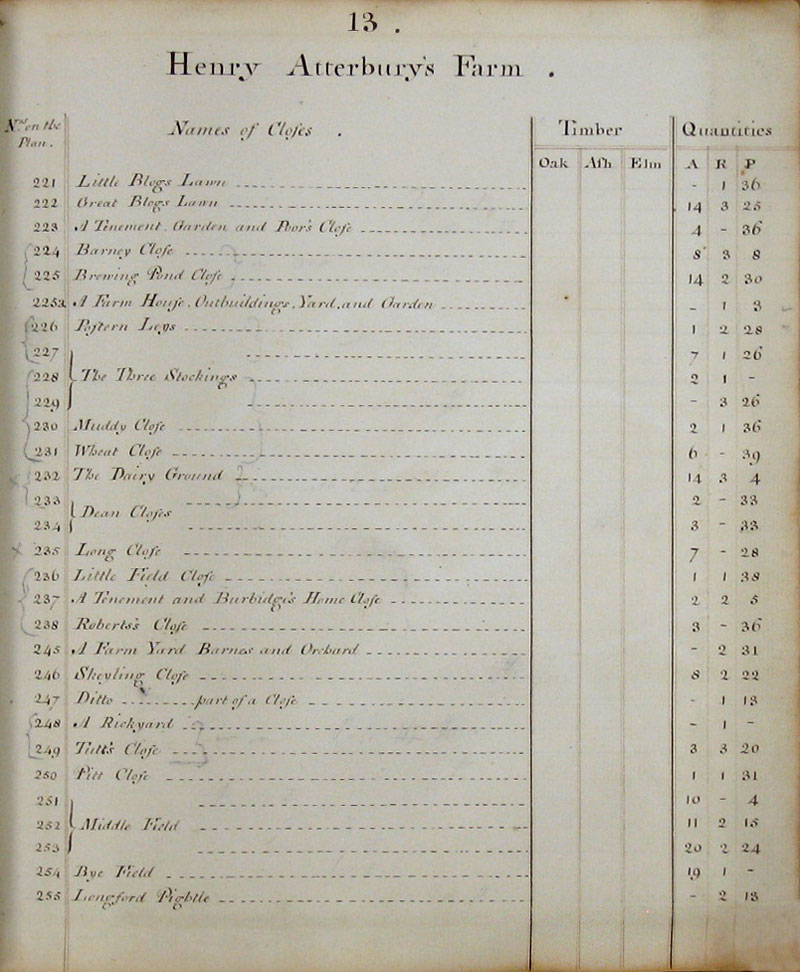 13 .
Henry Atterbury's Farm .
Nos. on the Plan . Names of Closes . Timber Quantities
Oak Ash Elm A R P
221 Little Blogs Lawn - 1 36
222 Great Blogs Lawn 14 3 25
223 A Tenement. Garden and Poor's Close 4 - 36
224 Barney Close 8 3 8
225 Brewing Pond Close 14 2 30
225a A Farm House. Outbuildings. Yard. and Garden - 1 3
226 Postern Leys 1 2 28
227 7 1 26
228 The Three Stockings 2 1 -
229 - 3 26
230 Muddy Close 2 1 36
231 Wheat Close 6 - 39
232 The Dairy Ground 14 3 4
233 2 - 33
Dean Closes
234 3 - 33
235 Long Close 7 - 28
236 Little Field Close 1 1 38
237 A Tenement and Burbidge's Home Close 2 2 5
238 Roberts's Close 3 - 36
245 A Farm Yard Barnes and Orchard - 2 31
246 Skevling Close 8 2 22
247 Ditto part of a Close - 1 13
248 A Rickyard - 1 -
249 Tutt's Close 3 3 20
250 Pitt Close 1 1 31
251 10 - 4
252 Middle Field 11 2 15
253 20 2 24
254 Bye Field 19 1 -
255 Longford Pightle - 2 13